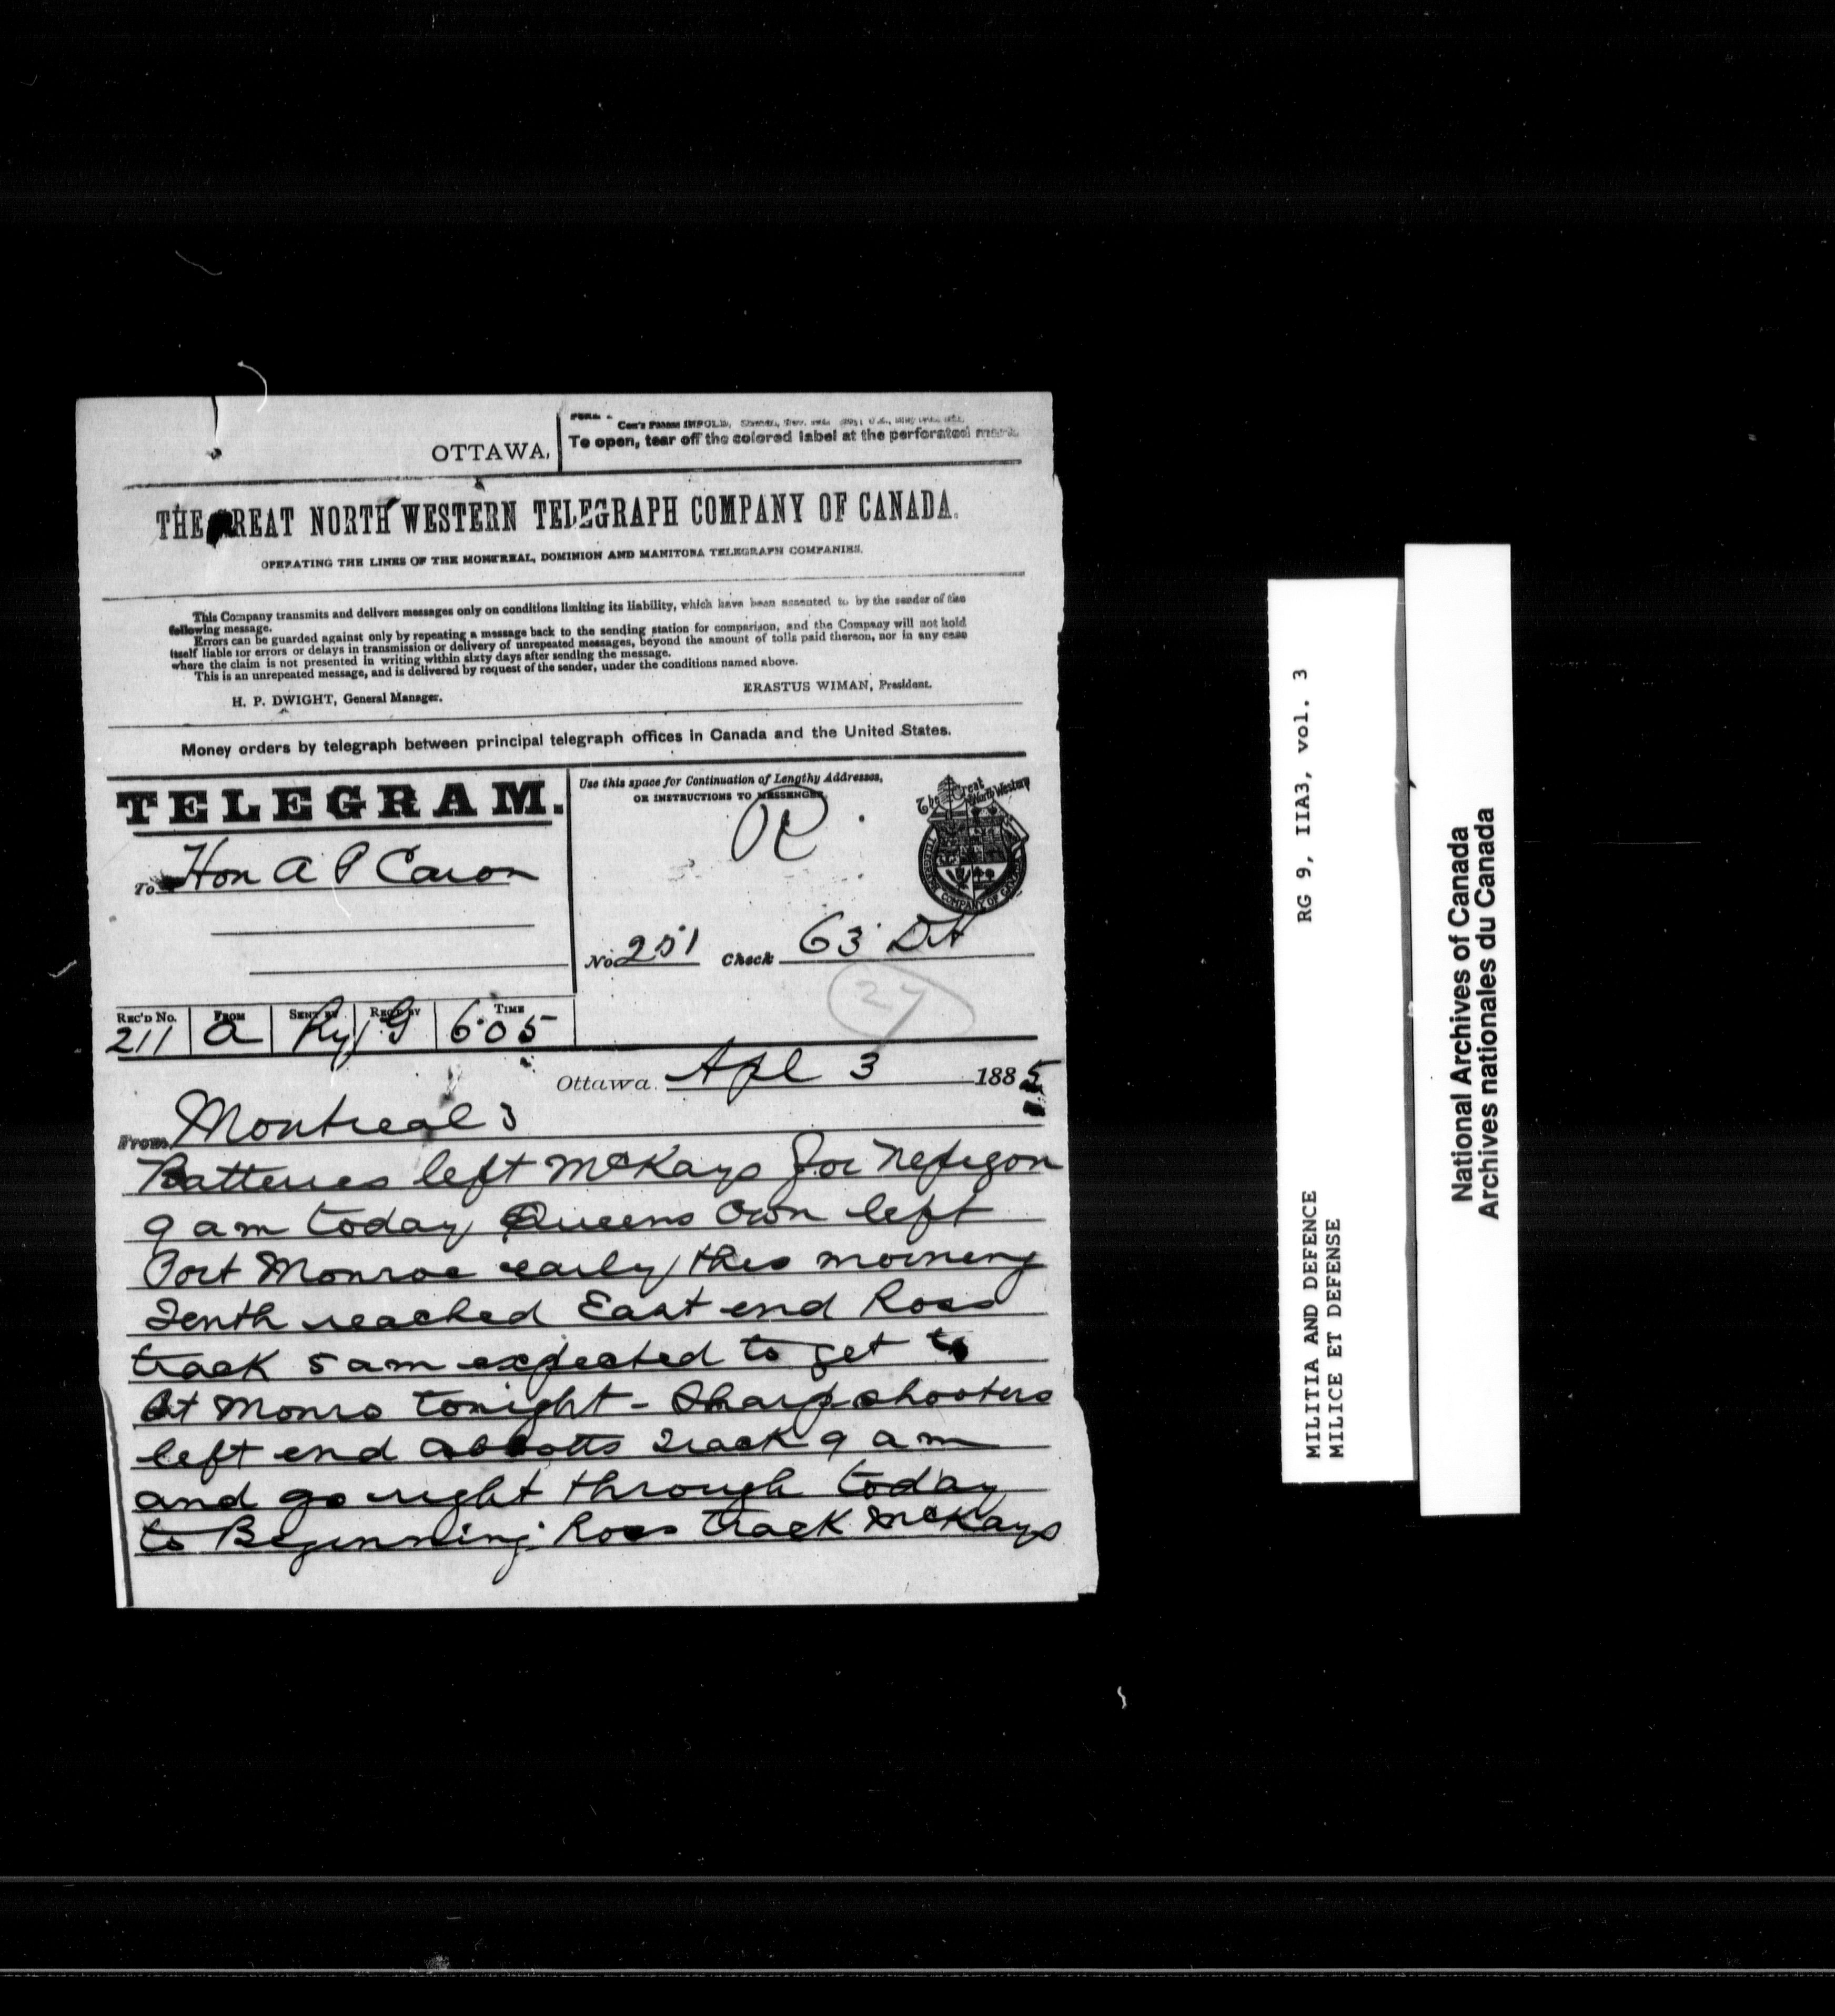 OTTAWA,
To open, tear off the colored label at the perforated mark.
THE GREAT NORTH WESTERN TELEGRAPH COMPANY OF CANADA.
OPERATING THE LINES OF THE MONTREAL, DOMINION AND MANITOBA TELEGRAPH COMPANIES.
This Company transmits and delivers messages only on conditions limiting its liability, which have been assented to by the sender of the
following message.
Errors can be guarded against only by repeating a message back to the sending station for comparison, and the Company will not hold
itself liable for errors or delays in transmission or delivery of unrepeated messages, beyond the amount of tolls paid thereon, nor in any case
where the claim is not presented in writing within sixty days after sending the message.
This is an unrepeated message, and is delivered by request of the sender, under the conditions named above.
ERASTUS WIMAN, President.
H. P. DWIGHT, General Manager.
Money orders by telegraph between principal telegraph offices in Canada and the United States.
TELEGRAM.
Use this space for Continuation of Lengthy Addresses,
OR INSTRUCTIONS TO MESSENGER.
R
The Great North Western
TELEGRAPH COMPANY OF CANADA
To Hon A P Caron
No 251 Check 63 DH
27
REC'D No. FROM SENT BY REC'D BY TIME
211 a Ry G 6.05
Ottawa. Apl 3 1885
From Montreal 3
Batteries left McKays for Nepigon
9 am today Queens Own left
Port Monroe early this morning
Tenth reached East end Ross
track 5 am expected to get to
Pt Monro tonight - Sharpshooters
left end abbotts track 9 am
and go right through today
to Beginning Ross track McKays
RG 9, IIA3, vol. 3
MILITIA AND DEFENCE
MILICE ET DEFENSE
National Archives of Canada
Archives nationales du Canada